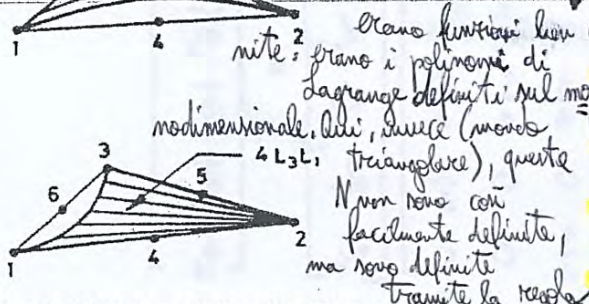 erano funzioni ben
1 4 2
nite: erano i polinomi di
Lagrange definiti sul mo
nodimensionale. Qui, invece (mondo
3
4 L₃L₁ triangolare), queste
6 5
N non sono così
2
facilmente definite,
1 4
ma sono definite
tramite la regola